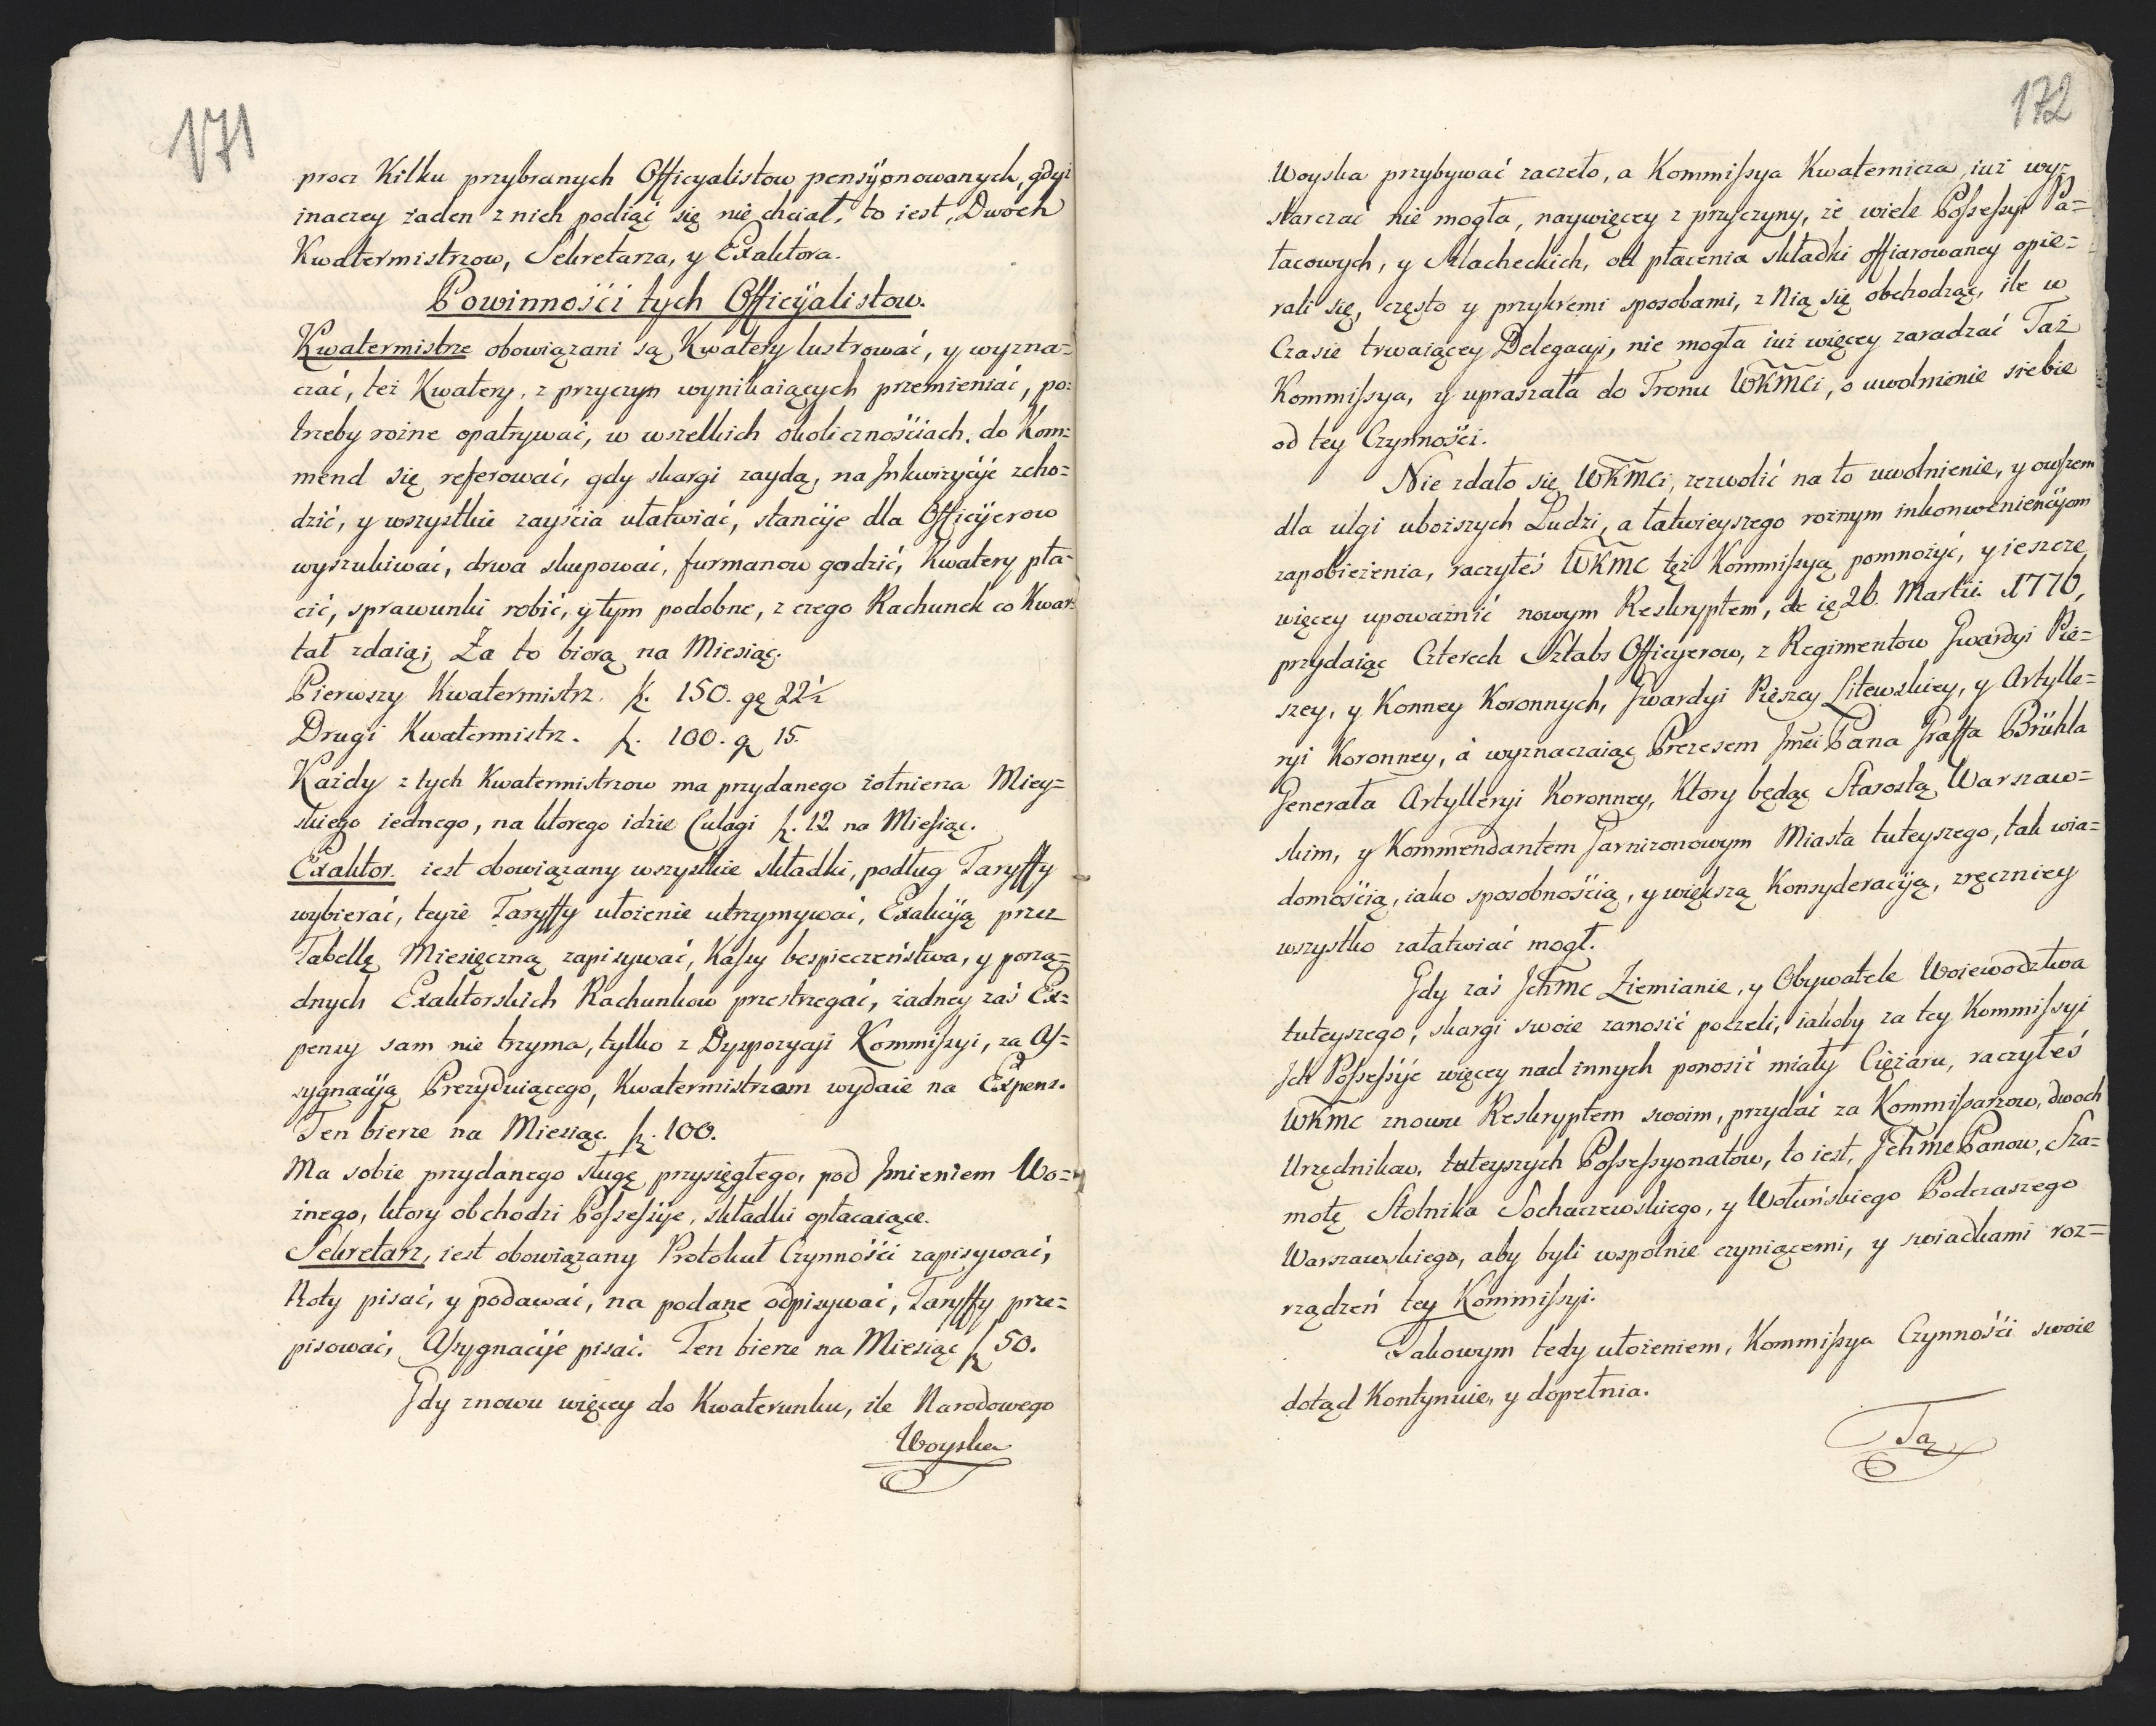 171
procz Kilku przybranych Officyalistow pensyonowanych, gdyż
inaczey żaden z nich podiąć się nie chciał, to iest, Dwoch
Kwatermistrzow, Sekretarza, y Exaktora.
Powinnośći tych Officÿalistow.
Kwatermistrze obowiązani są Kwatery lustrować, y wyzna=
czać, też Kwatery, z przyczyn wynikaiących przemieniać, po=
trzeby rożne opatrywać, w wszelkich okolicznośćiach, do Kom=
mend się referować, gdy skargi zaydą, na Inkwizycÿe zcho=
dzić, y wszystkie zayścia ułatwiać, stancÿe dla Officÿerow
wyszukiwać, drwa skupować, furmanow godzić, Kwatery pła=
cić, sprawunki robić, y tym podobne, z czego Rachunek co Kwar=
tał zdaią; Za to biorą na Miesiąc.
Pierwszy Kwatermistrz. f. 150. gę 22½
Drugi Kwatermistrz. f. 100. g 15.
Każdy z tych Kwatermistrzow ma przydanego żołnierza Miey=
skiego iednego, na ktorego idzie Culagi f. 12 na Mieſiąc.
Exaktor. iest obowiązany wszystkie składki, podług Taryffy
wybierać, teyże Taryffy ułożenie utrzymywać, Exakcÿą przez
Tabellę Miesięczną zapisywać, Kaſsy bespieczeństwa, y porzą=
dnych Exaktorskich Rachunkow przestrzegać, żadney zaś Ex=
pensy sam nie trzyma, tylko z Dyspozycyi Kommiſsyi, za Aſ=
sygnacÿą Prezyduiącego, Kwatermistrzom wydaie na Expens.
Ten bierze na Miesiąc. f. 100.
Ma sobie przydanego sługę przysięgłego, pod Jmieniem Wo=
źnego, ktory obchodzi Poſseſsÿe, składki opłacaiące.
Sekretarz, iest obowiązany Protokuł Czynnośći zapisywać,
Noty pisać, y podawać, na podane odpisywać, Taryffy prze=
pisować, Aſsygnacÿe pisać. Ten bierze na Miesiąc f 50.
Gdy znowu więcey do Kwaterunku, ile Narodowego
Woyska
172
Woyska przybywać zaczeło, a Kommiſsya Kwaternicza iuż wy=
starczać nie mogła, naywięcey z przyczyny, że wiele Poſseſsyi Pa=
łacowych, y Szlacheckich, od płacenia składki offiarowaney opie=
rali się, często y przykremi sposobami, z Nią się obchodząc, ile w
Czasie trwaiącey Delegacyi, nie mogła iuż więcey zaradzać Taż
Kommiſsya, y upraszała do Tronu WKMCi, o uwolnienie siebie
od tey Czynnośći.
Nie zdało się WKMCi, zezwolić na to uwolnienie, y owszem
dla ulgi uboższych Ludzi, a łatwieyszego rożnym inkonweniencÿom
zapobieżenia, raczyłeś WKMC też Kommiſsyą pomnożyć, y ieszcze
więcey upoważnić nowym Reskryptem, de ię 26. Martii 1776,
przydaiąc Czterech Sztabs Officyerow, z Regimentow Gwardyi Pie=
szey, y Konney Koronnych, Gwardyi Pieszey Litewskiey, y Artylle=
ryi Koronney, á wyznaczaiąc Prezesem Jmci Pana Graffa Brühla
Generała Artylleryi Koronney, Ktory będąc Starostą Warszaw=
skim, y Kommendantem Garnizonowym Miasta tuteyszego, tak wia=
domośćią, iako sposobnośćią, y większą Konsyderacÿą, zręczniey
wszystko załatwiać mogł.
Gdy zaś Jchmc Ziemianie, y Obywatele Woiewodztwa
tuteyszego, skargi swoie zanosić poczeli, iakoby za tey Kommiſsyi
Jch Poſseſsÿe więcey nad innych ponosić miały Ciężaru, raczyłeś
WKMC znowu Reskryptem swoim, przydać za Kommiſsarzow, dwoch
Urzędnikow, tuteyszych Poſseſsyonatow, to iest, Jchmc Panow, Sza=
motę Stolnika Sochaczewskiego, y Woluńskiego Podczaszego
Warszawskiego, aby byli wspolnie czyniącemi, y swiadkami roz=
rządzeń tey Kommiſsyi.
Takowym tedy ułożeniem, Kommiſsya Czynnośći swoie
dotąd Kontynuie, y dopełnia.
Ta